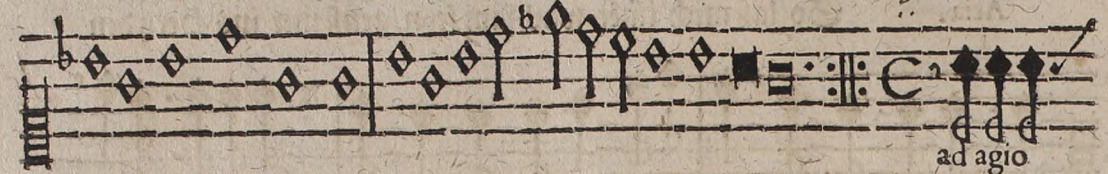 ad agio